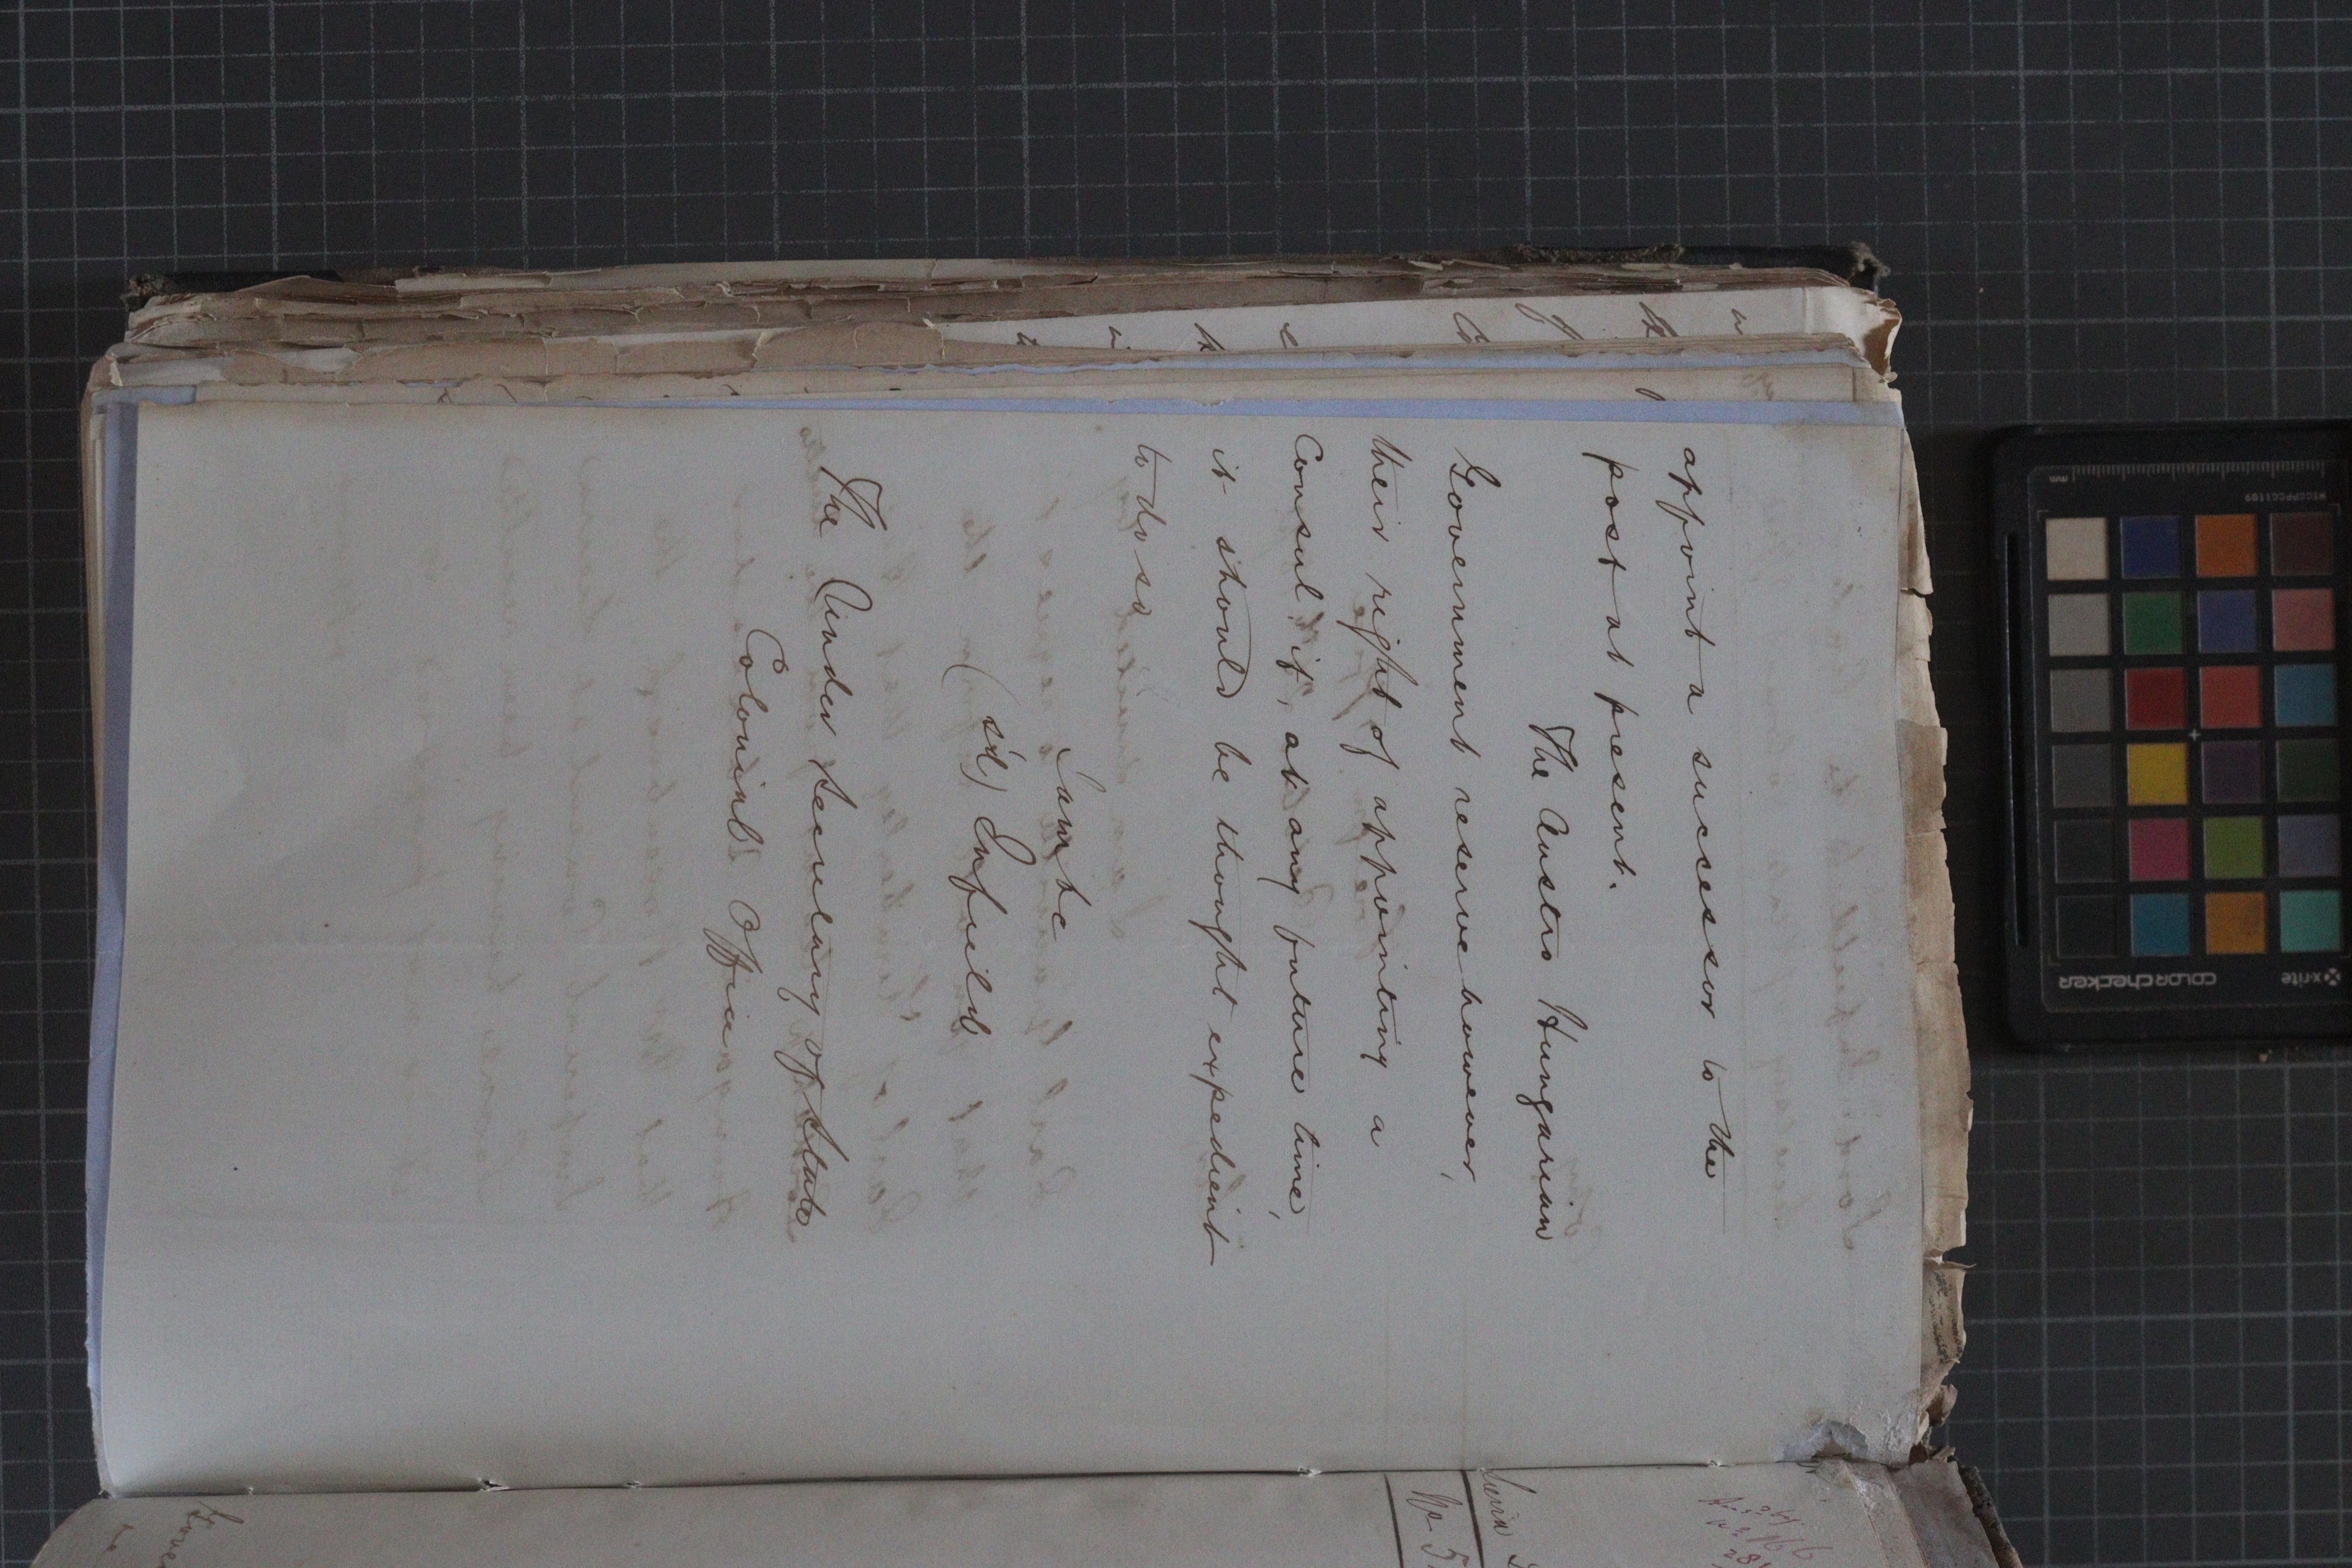 appoint a successor to the
post at present.
The Austro Hungarian
Government reserve however,
their right of appointing a
Consul if, at any future time,
it should be thought expedient
to do so
I am &c
(sd) Enfield
The Under Secretary of State
Colonial Office
No 5
colorchecker
x-rite
mm